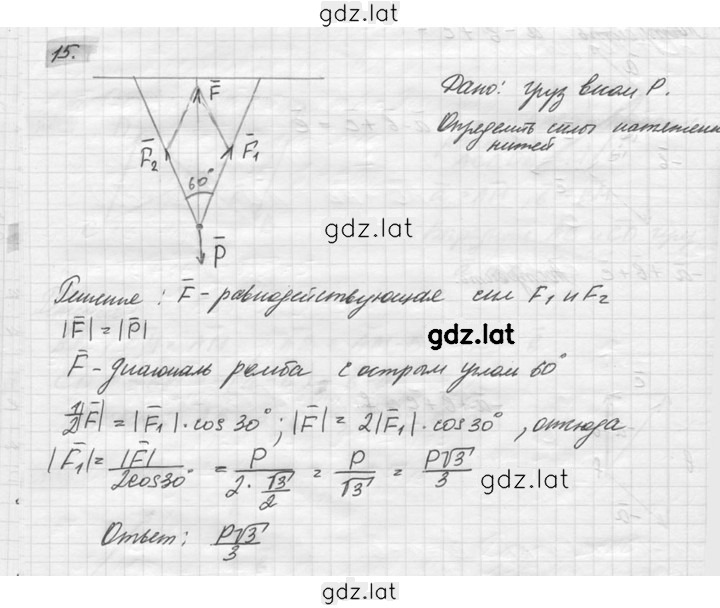 gdz.lat
15.
F̄
F̄₂
F̄₁
60°
P̄
Дано: груз весом P.
Определить силы натяжения
нитей
gdz.lat
Решение: F̄ - равнодействующая сил F₁ и F₂
|F̄| = |P̄|
gdz.lat
F̄ - диагональ ромба с острым углом 60°
1/2|F̄| = |F̄₁| · cos 30°; |F̄| = 2|F̄₁| · cos 30°, откуда
|F̄₁| = |F̄|/2cos30° = P/(2 · √3/2) = P/√3 = P√3/3
gdz.lat
Ответ: P√3/3
gdz.lat